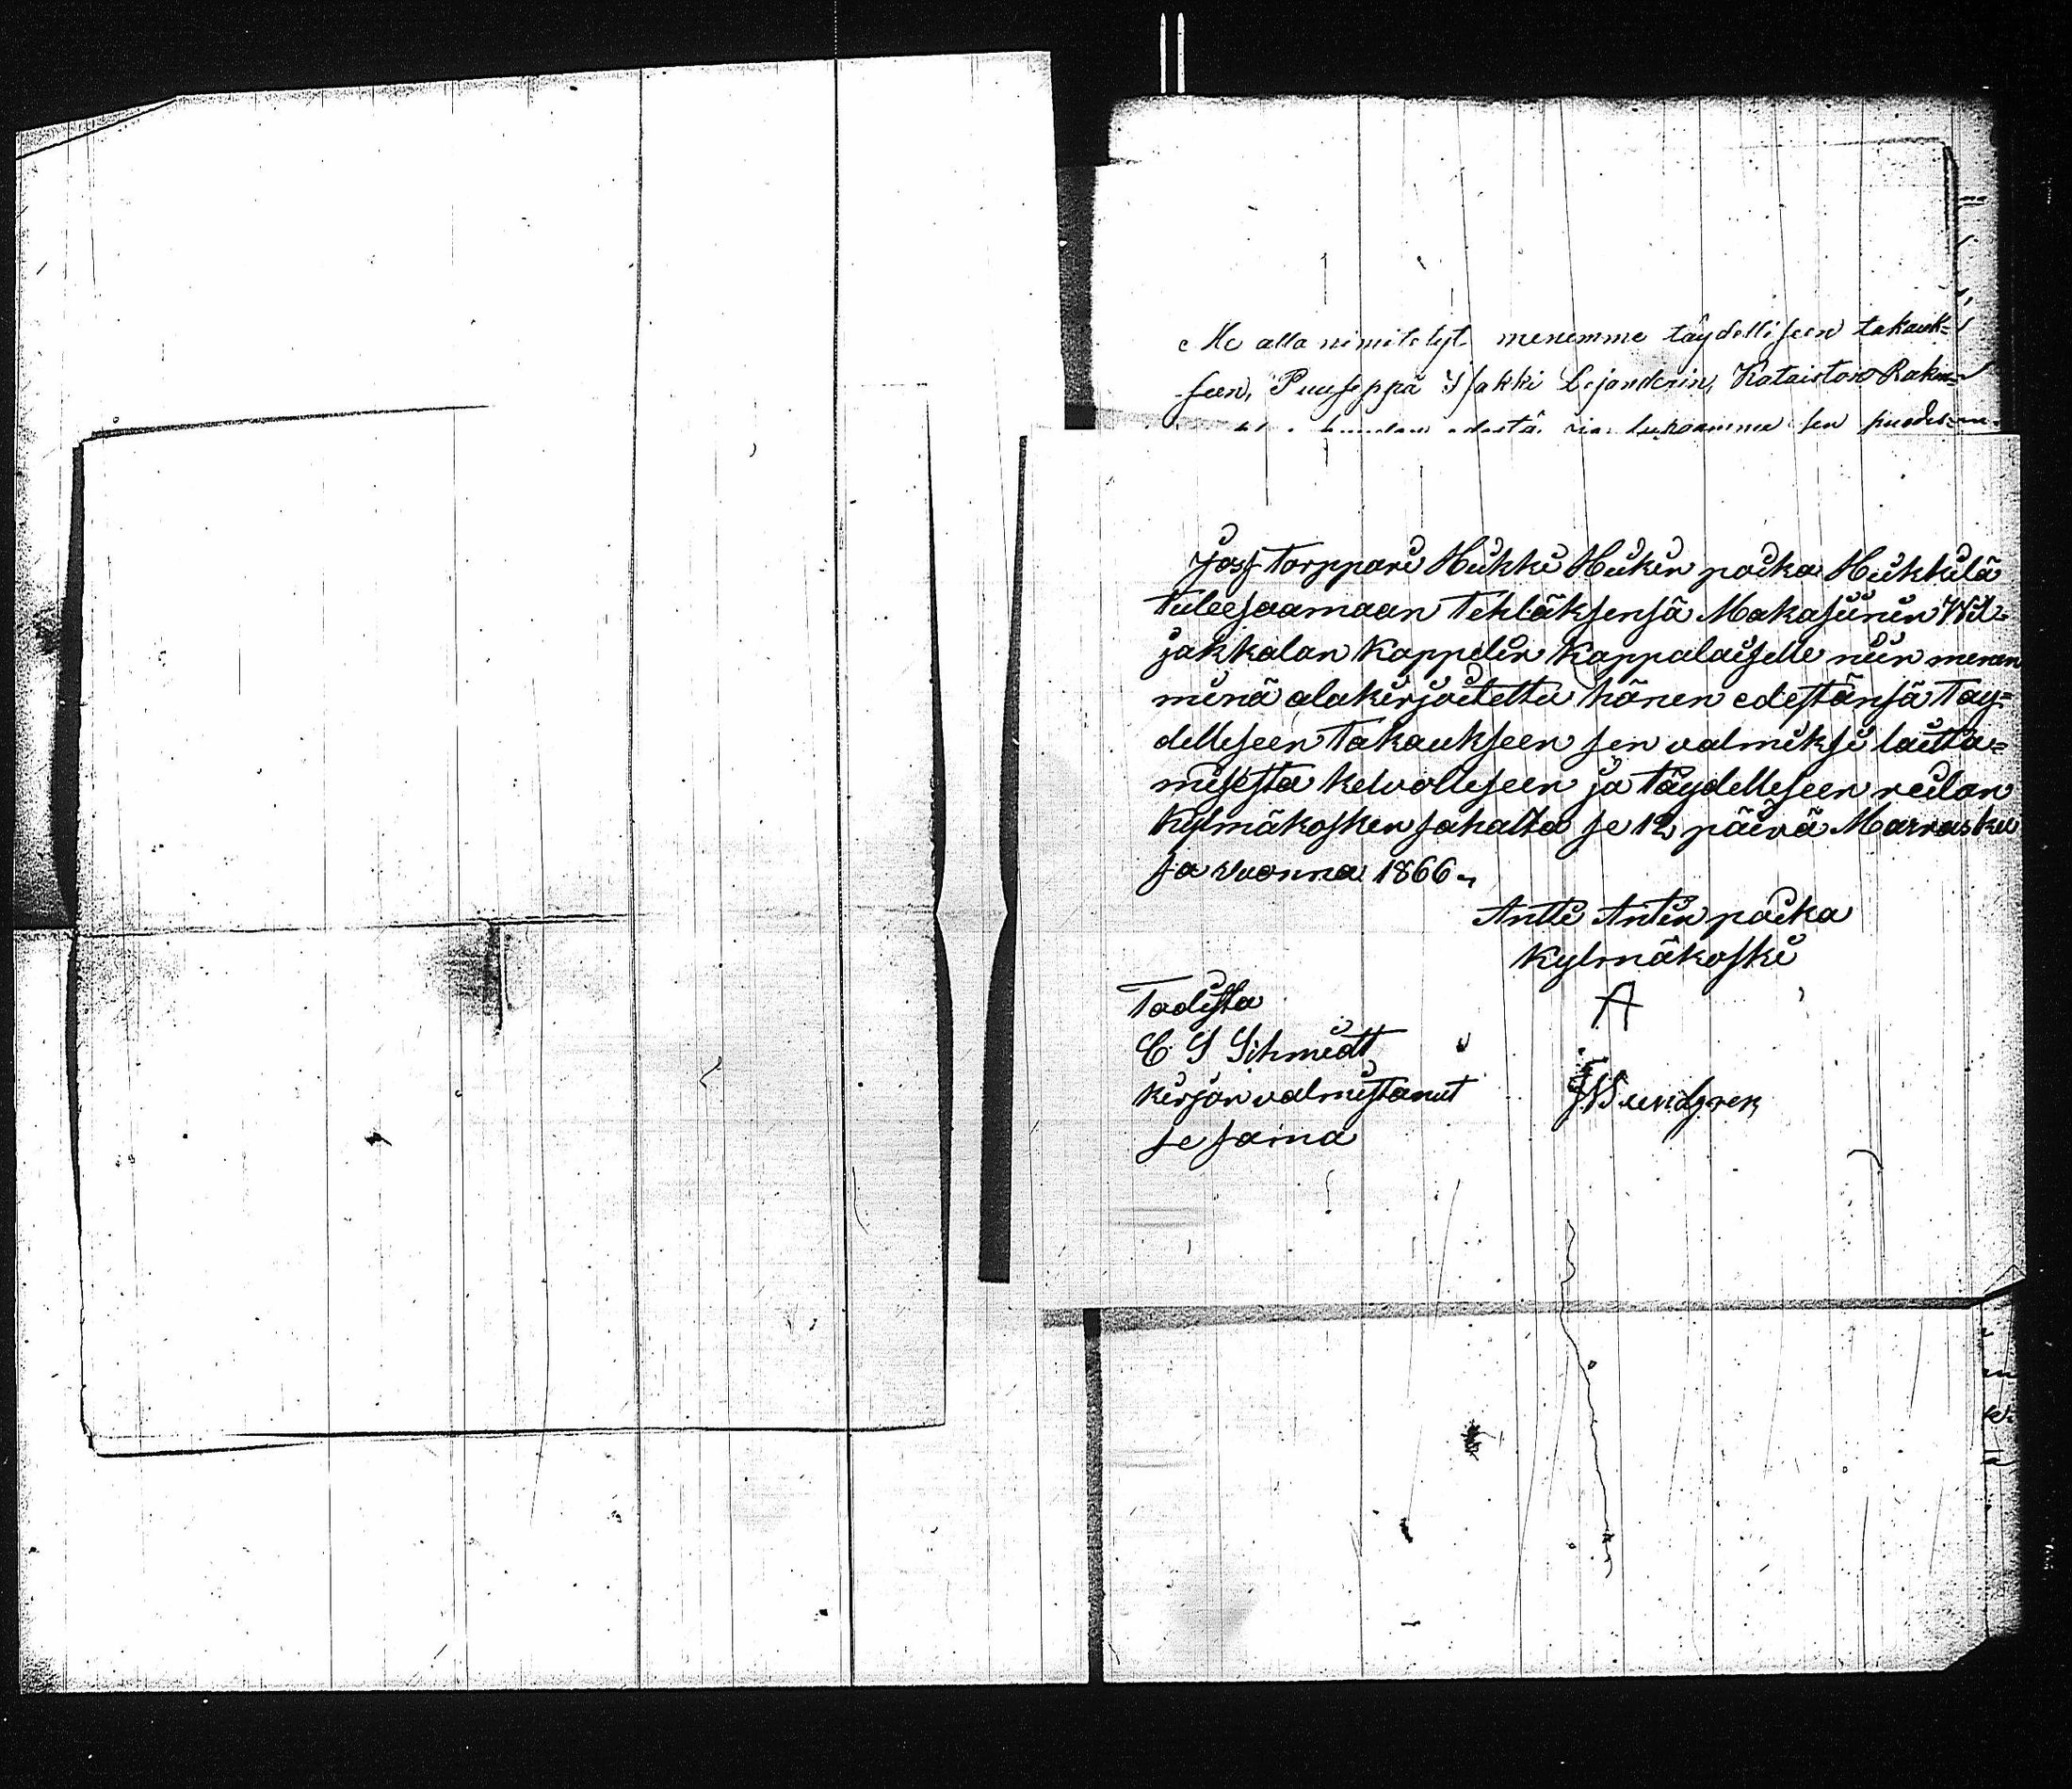 Me alla nimitetyt menemme täydelliseen takauk-
seen, Puuseppä Isakki Lejonderin, Kataiston Raken-
edestä ja lupaamme sen puodes
Jos Torppari Heikki Heikin poika Heikkilä
Tulee saamaan Tehtäksensä Makasiinin Wii-
jakkalan Kappelin Kappalaiselle niin menen
minä alakirjoitettu hänen edestänsä Täy-
delliseen Takaukseen sen valmiiksi laitta-
misesta kelvolliseen ja Täydelliseen reilan
Kylmäkosken sahalta se 12 päivä Marrasku
sa vuonna 1866
Antti Antin poika
Kylmäkoski
A
Todista
C S Schmidt
Kirjan valmistanut
se sama